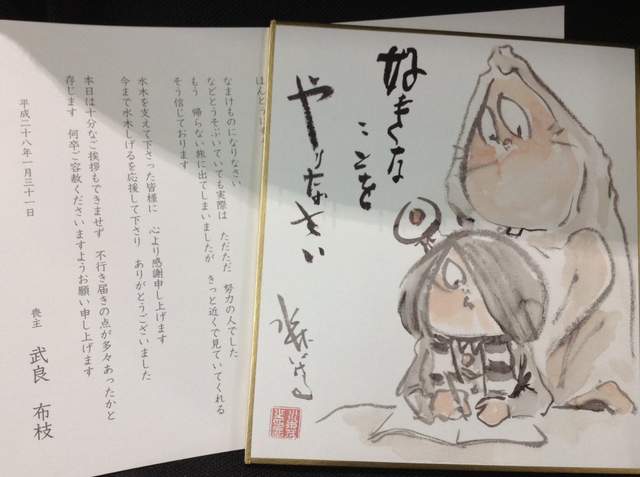 好きな
ことを
やりなさい
水木しげる
ほんとうに
なまけものになりなさい
などとうそぶいていても実際は ただただ 努力の人でした
もう 帰らない旅に出てしまいましたが きっと近くで見ていてくれる
そう信じております
水木を支えて下さった皆様に 心より感謝申し上げます
今まで水木しげるを応援して下さり ありがとうございました
本日は十分なご挨拶もできませず 不行き届きの点が多々あったかと
存じます 何卒ご容赦くださいますようお願い申し上げます
平成二十八年一月三十一日
喪主 武良 布枝